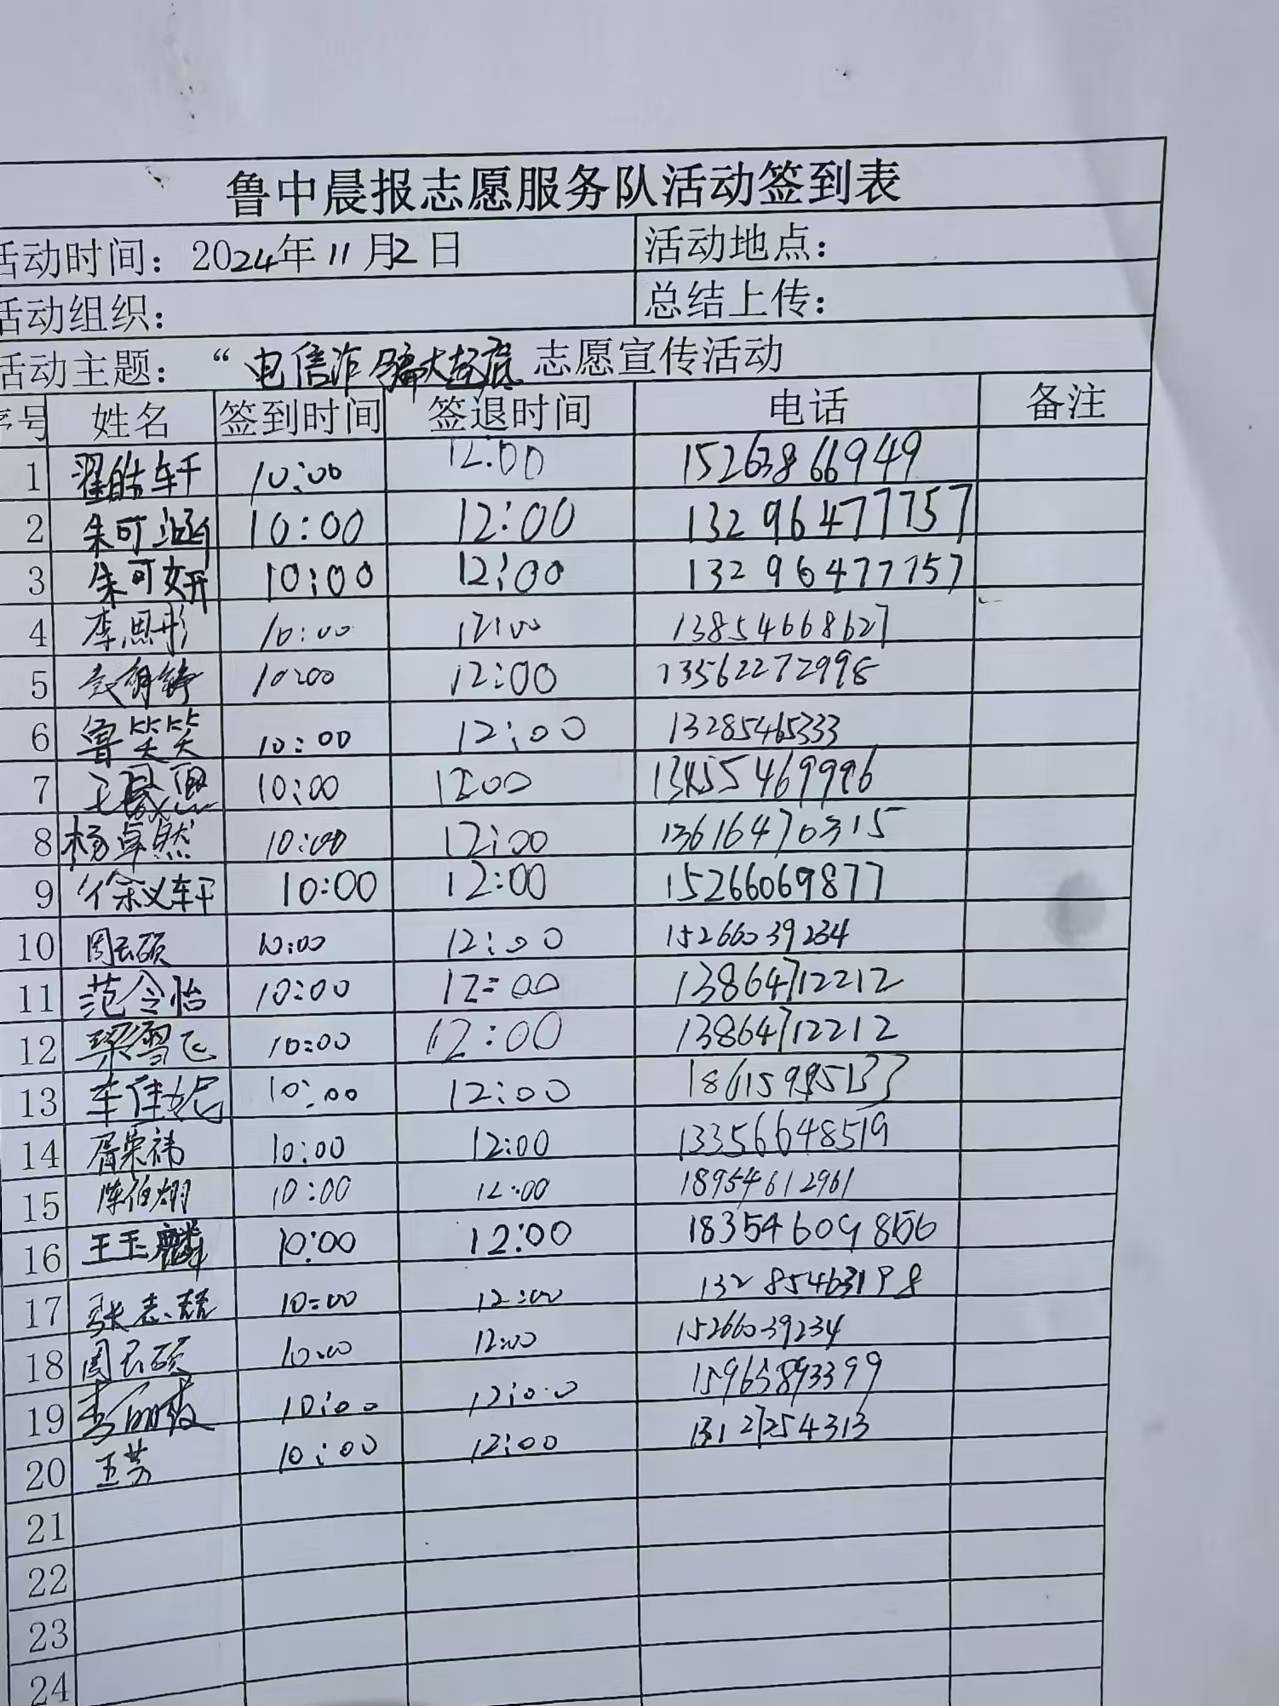 鲁中晨报志愿服务队活动签到表
活动时间：2024年11月2日 活动地点：
活动组织： 总结上传：
活动主题：“电信诈骗大起底 志愿宣传活动
序号 姓名 签到时间 签退时间 电话 备注
1 翟皓轩 10:00 12:00 15263866949
2 朱可涵 10:00 12:00 13296477757
3 朱可妍 10:00 12:00 13296477757
4 李思彤 10:00 12:00 13854668627
5 10:00 12:00 13562272998
6 鲁笑笑 10:00 12:00 13285465333
7 王晟恩 10:00 12:00 13455469996
8 杨卓然 10:00 12:00 13616470315
9 徐义轩 10:00 12:00 15266069877
10 周云硕 10:00 12:00 15266039234
11 范令怡 10:00 12:00 13864712212
12 梁雪飞 10:00 12:00 13864712212
13 车佳妮 10:00 12:00 18615995133
14 胥荣祎 10:00 12:00 13356648519
15 陈伯翊 10:00 12:00 18954612961
16 王玉麟 10:00 12:00 18354609856
17 张志競 10:00 12:00 13285463198
18 周云硕 10:00 12:00 15266039234
19 10:00 12:00 15965893399
20 王芳 10:00 12:00 13127254313
21
22
23
24